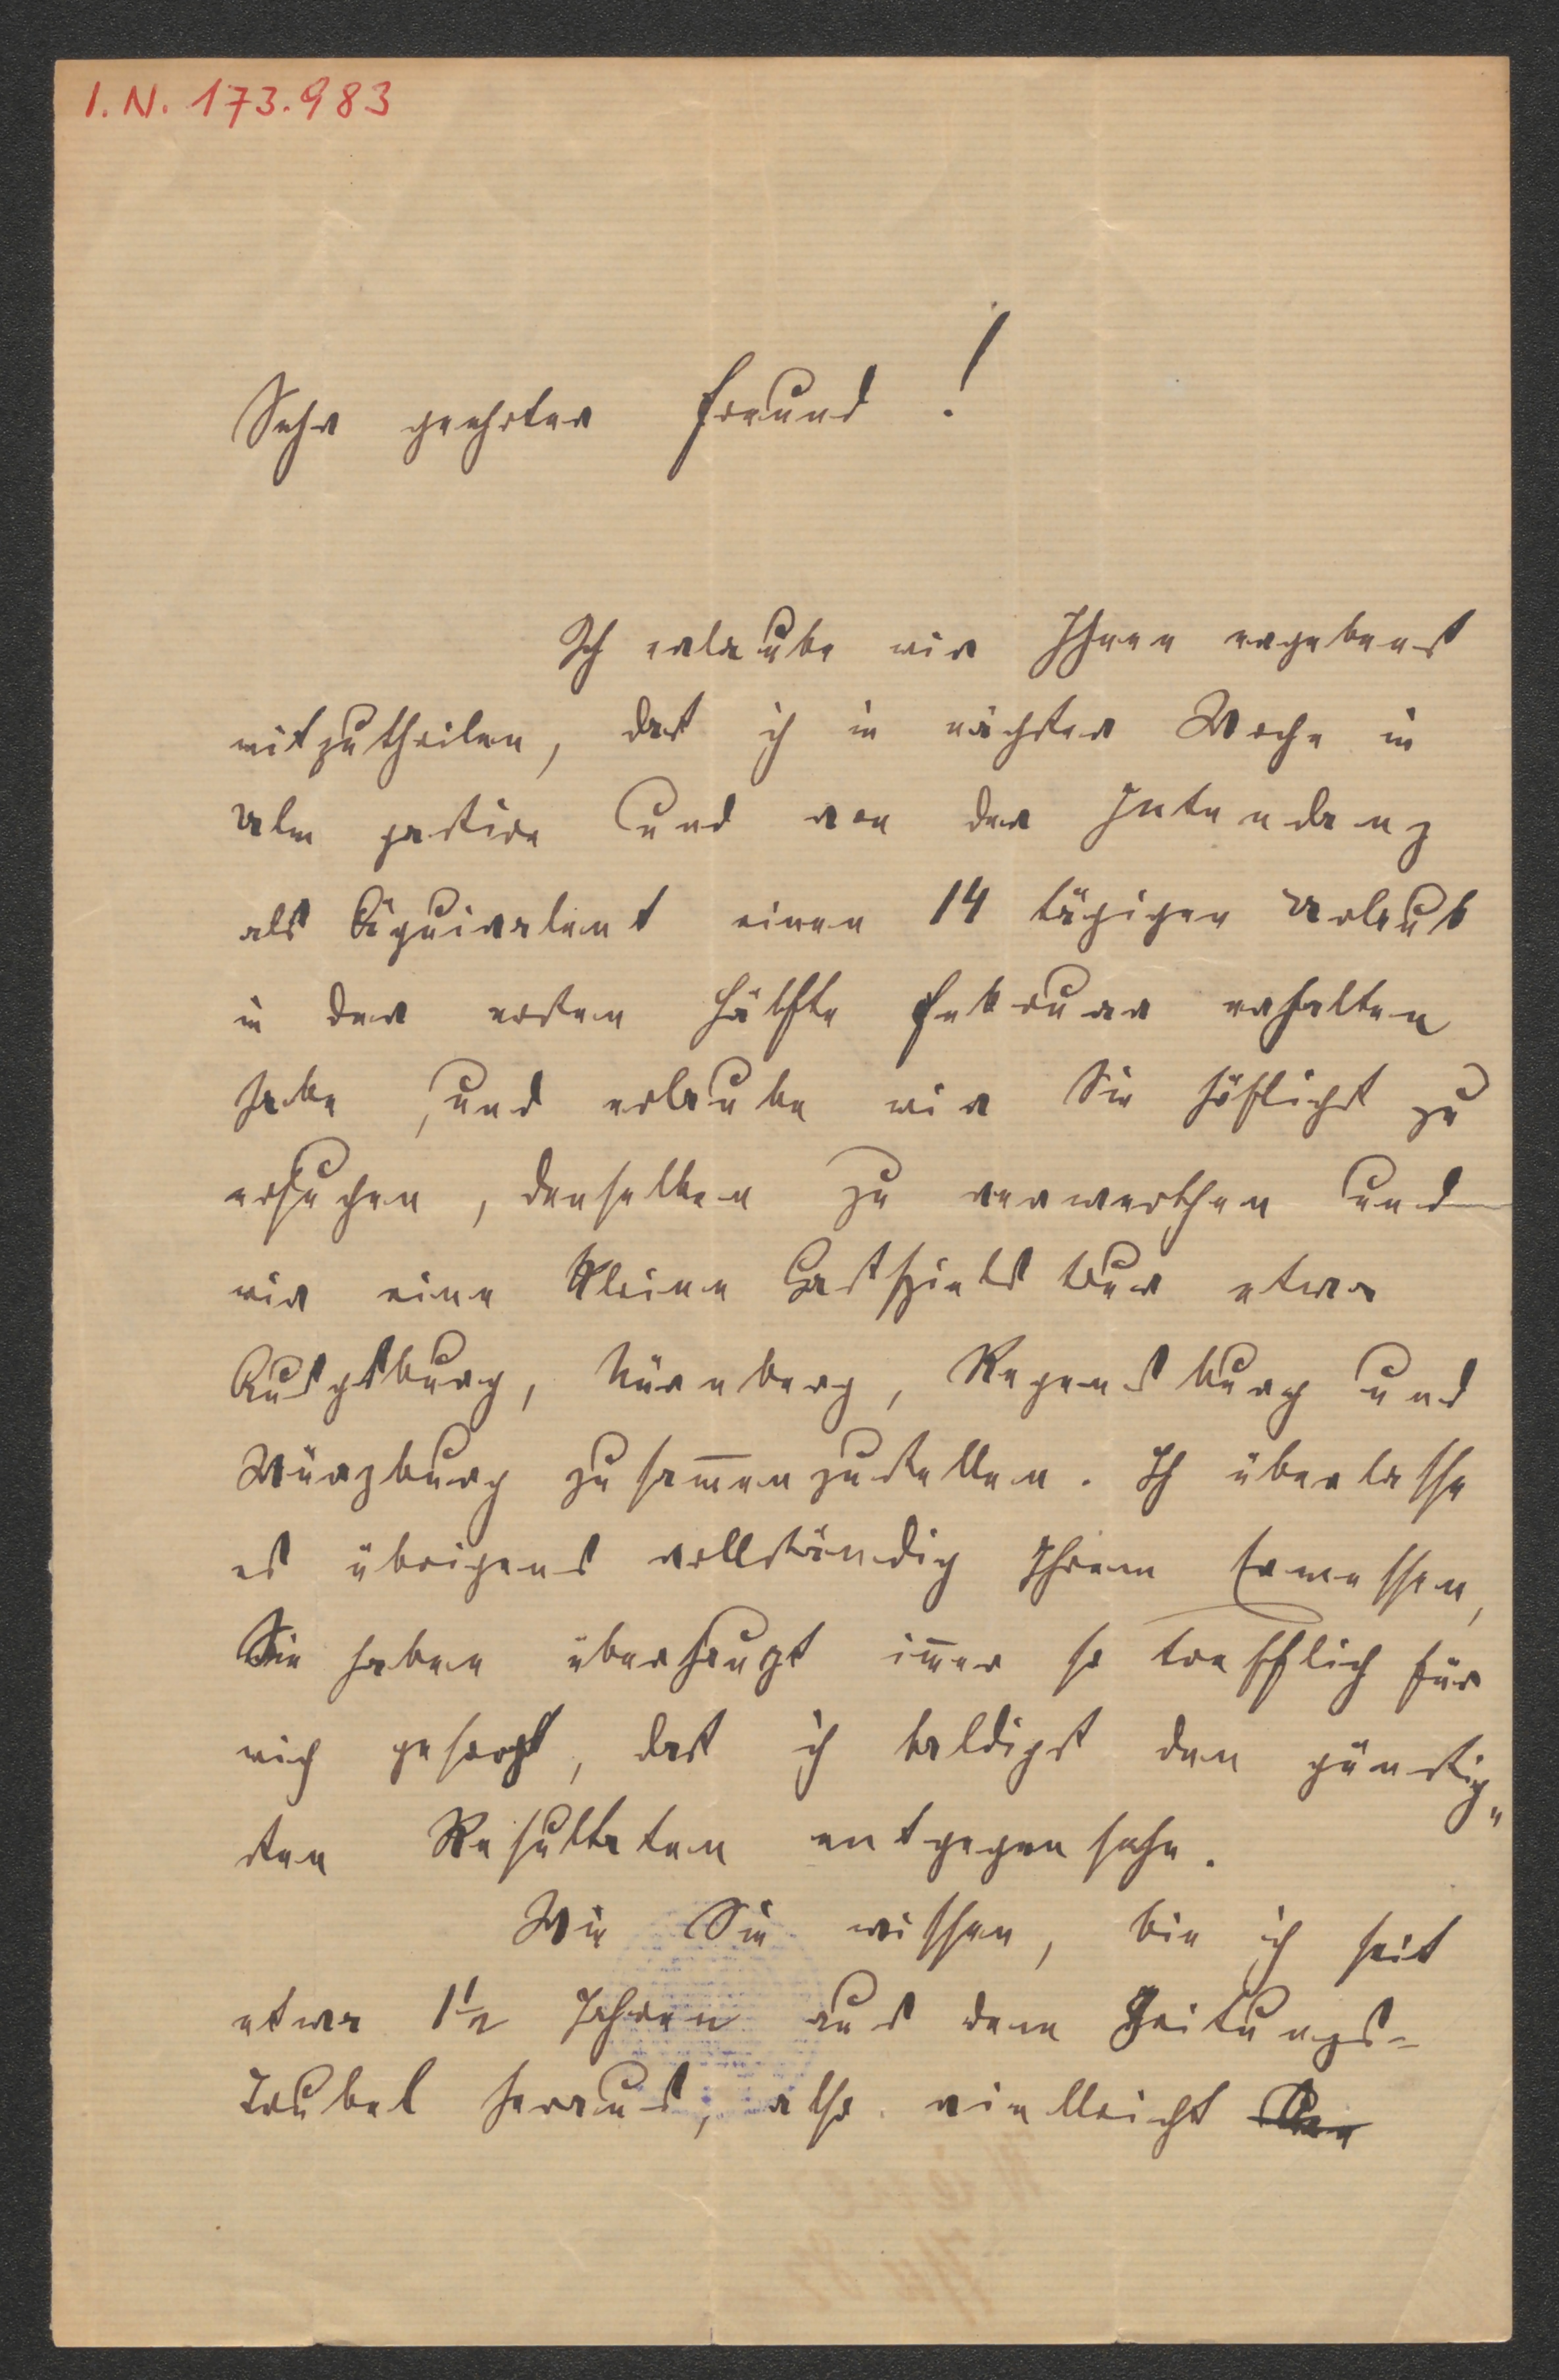 I. N. 173.983
Sehr geehrter Freund!
Ich erlaube mir Ihnen ergebenst
mitzutheilen, daß ich in nächster Woche in
Ulm gastire und von der Intendanz
als Äquivalent einen 14 tägigen Urlaub
in der ersten Hälfte Februar erhalten
habe, und erlaube mir Sie höflichst zu
ersuchen, denselben zu verwerthen und
mir eine kleine Gastspielstour etwa
Ausgsburg, Nürnberg, Regensburg und
Würzburg zusam̅enzustellen. Ich überlasse
es übrigens vollständig Ihrem Ermessen,
Sie haben überhaupt im̅er so trefflich für
mich gesorgt, daß ich baldigst den günstig„
sten Resultaten entgegensehe.
Wie Sie wissen, bin ich seit
etwa 1½ Jahren aus dem Zeitungs-
Trubel heraus, also vielleicht